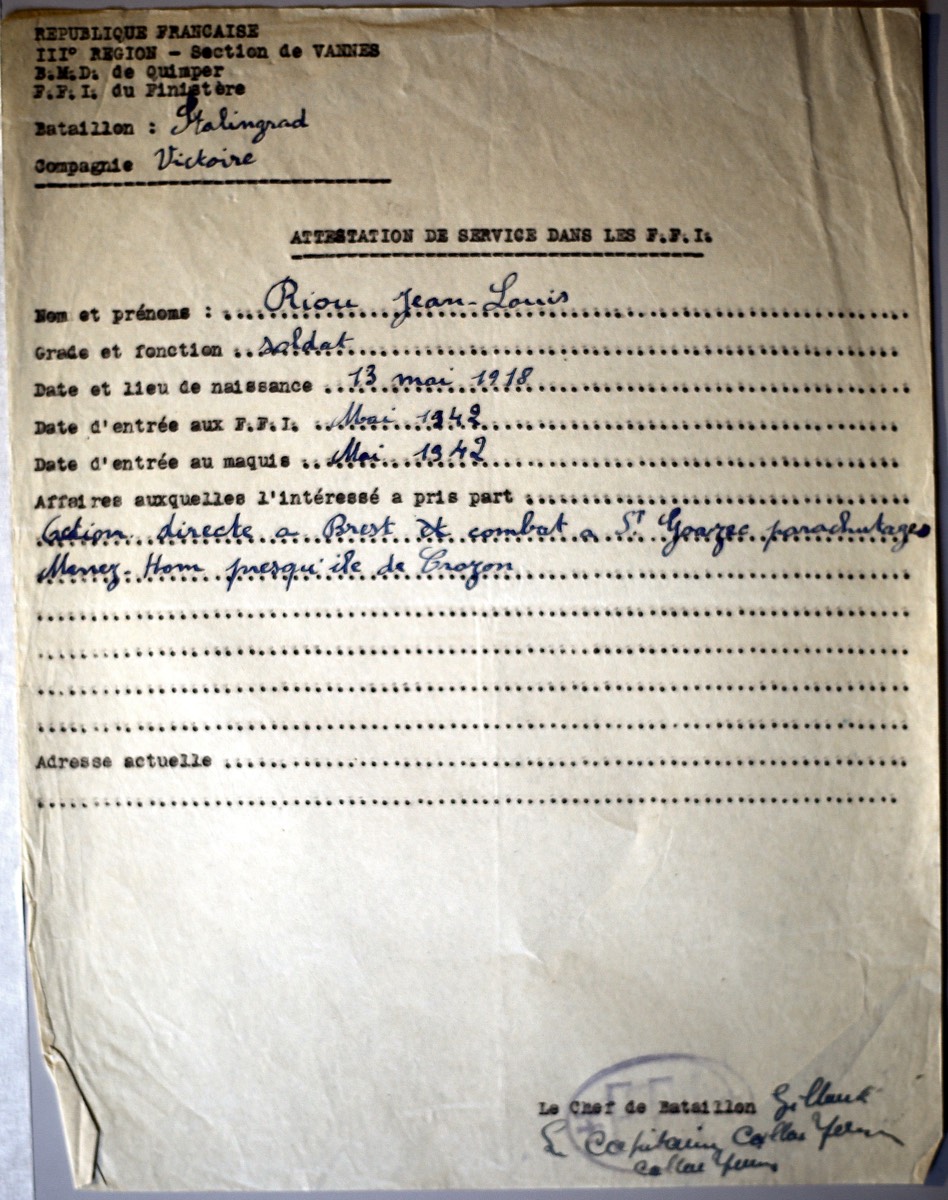 REPUBLIQUE FRANCAISE
IIIº REGION - Section de VANNES
B.M.D. de Quimper
F.F.I. du Finistère
Bataillon : Stalingrad
Compagnie Victoire
ATTESTATION DE SERVICE DANS LES F.F.I.
Nom et prénoms : Riou Jean-Louis
Grade et fonction soldat
Date et lieu de naissance 13 mai 1918
Date d'entrée aux F.F.I. Mai 1942
Date d'entrée au maquis Mai 1942
Affaires auxquelles l'intéressé a pris part
Action directe a Brest et combat a St Goazec parachutages
Menez-Hom presqu'ile de Crozon
Adresse actuelle
Le Chef de Bataillon
Capitaine